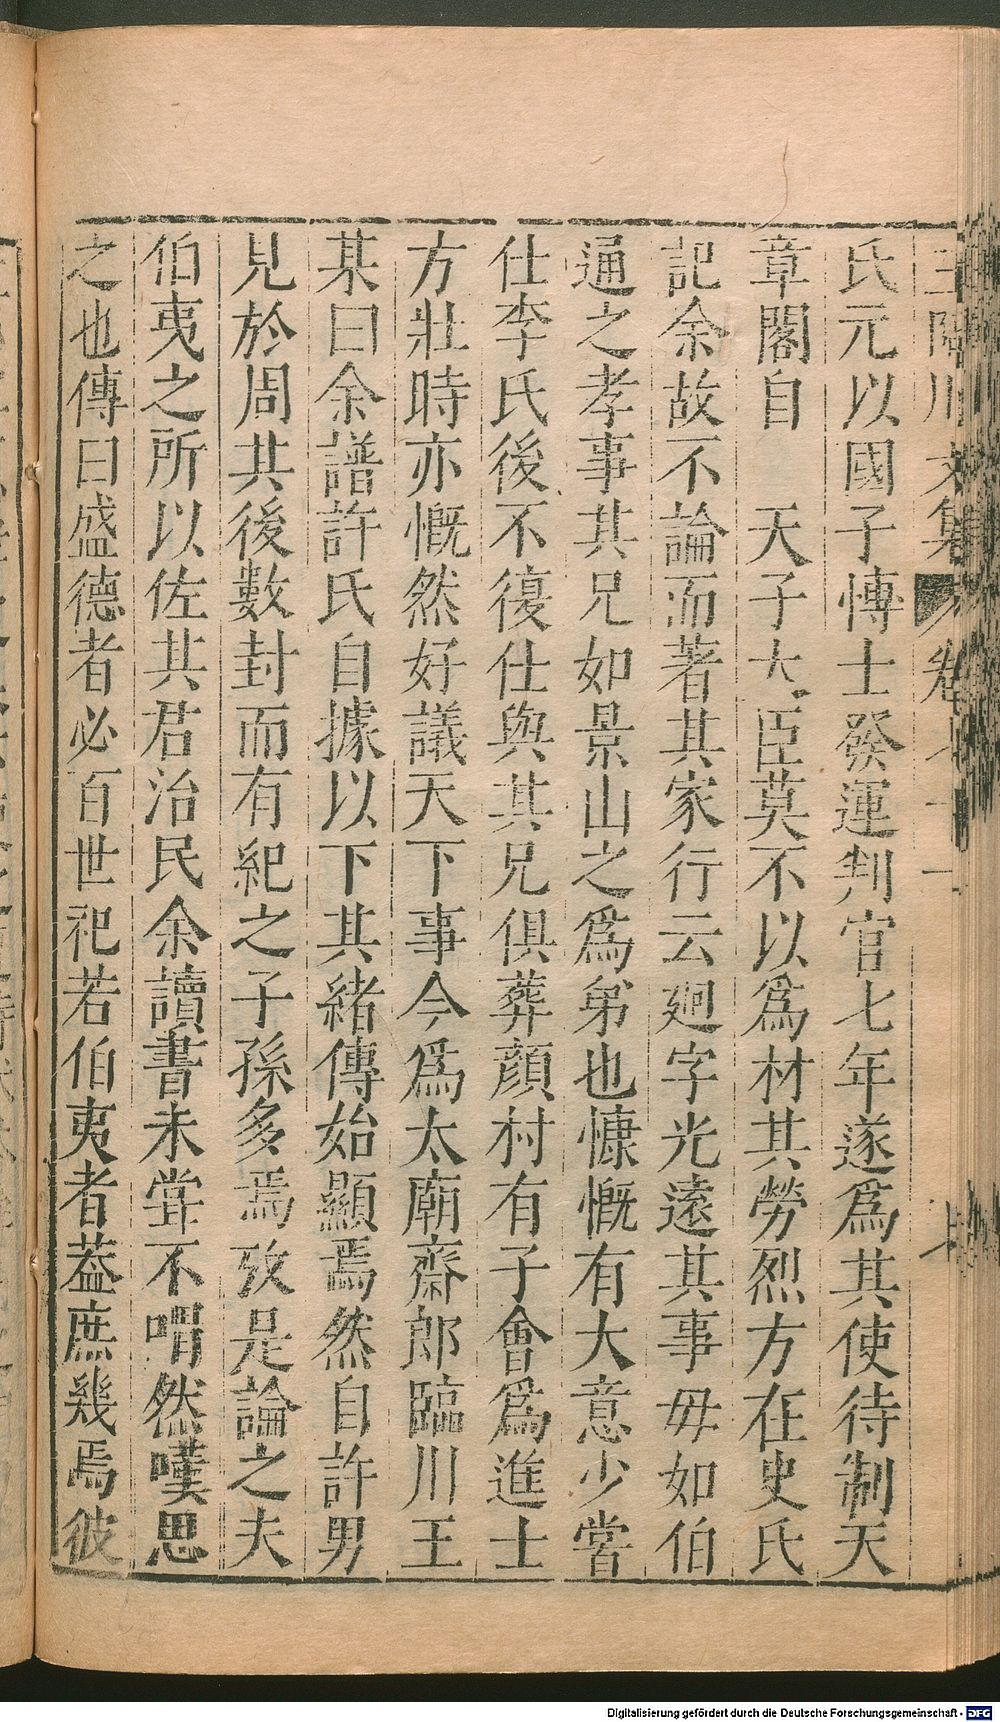 王臨川文集 卷七十一
氏元以國子愽士發運判官七年遂爲其使待制天
章閣自 天子大臣莫不以爲材其勞烈方在史氏
記余故不論而著其家行云廻字光遠其事毋如伯
通之孝事其兄如景山之爲弟也慷慨有大意少嘗
仕李氏後不復仕與其兄俱葬顔村有子會爲進士
方壯時亦慨然好議天下事今爲太廟齋郎臨川王
某曰余譜許氏自據以下其緒傳始顯焉然自許男
見於周其後數封而有紀之子孫多焉攷是論之夫
伯夷之所以佐其君治民余讀書未甞不喟然嘆思
之也傳曰盛德者必百世祀若伯夷者葢庶幾焉彼
Digitalisierung gefördert durch die Deutsche Forschungsgemeinschaft - DFG